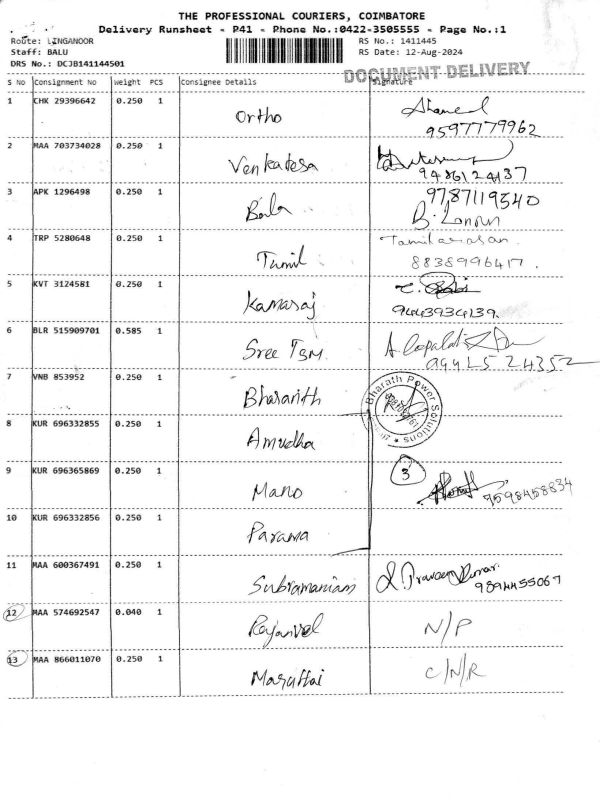 THE PROFESSIONAL COURIERS, COIMBATORE
Delivery Runsheet - P41 - Phone No.:0422-3505555 - Page No.:1
Route: LINGANOOR RS No.: 1411445
Staff: BALU RS Date: 12-Aug-2024
DRS No.: DCJB141144501
DOCUMENT DELIVERY
S No Consignment No Weight PCS Consignee Details Signature
1 CHK 29396642 0.250 1 Ortho
9597779962
2 MAA 703734028 0.250 1 Venkatesa
9486124137
3 APK 1296498 0.250 1 Bala 9787119540
4 TRP 5280648 0.250 1 Tamil Tamilarasan.
8838996417.
5 KVT 3124581 0.250 1 Kamaraj
9443934139.
6 BLR 515909701 0.585 1 Sree TSM
94425 24352
7 VNB 853952 0.250 1 Bharanith
Bharath Power Solutions
8 KUR 696332855 0.250 1 Amudha
9 KUR 696365869 0.250 1 Mano 3
9598458834
10 KUR 696332856 0.250 1 Parama
11 MAA 600367491 0.250 1 Subramaniam Praveen Kumar
9894455067
12 MAA 574692547 0.040 1 Rajanvel N/P
13 MAA 866011070 0.250 1 C/N/R